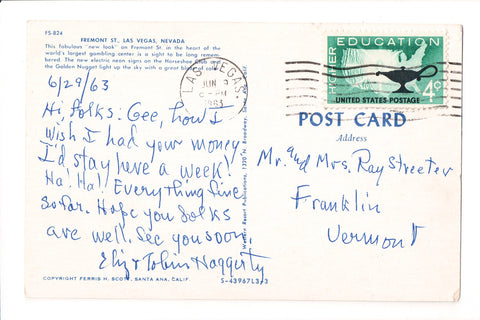 FS-824
FREMONT ST., LAS VEGAS, NEVADA
This fabulous "new look" on Fremont St. in the heart of the
world's largest gambling center is a sight to be long remem-
bered. The new electric neon signs on the Horseshoe Club and
the Golden Nugget light up the sky with a great blaze of color.
6/29/63
Hi folks: Gee, how I
wish I had your money
I'd stay here a week!
Ha! Ha! Everything fine
so far. Hope you folks
are well. See you soon.
Eliz & Tobin Haggerty
COPYRIGHT FERRIS H. SCOTT, SANTA ANA, CALIF.
S-43967L3-3
Western Resort Publications, 1320 N. Broadway,
LAS VEGAS
JUN
1963
HIGHER EDUCATION
4¢
UNITED STATES POSTAGE
POST CARD
Address
Mr. and Mrs. Ray Streeter
Franklin
Vermont